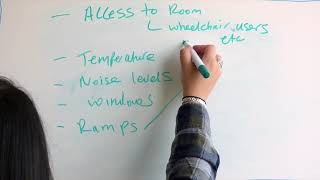 — Access to Room
wheelchair users
etc
— Temperature
— Noise levels
— windows
— Ramps